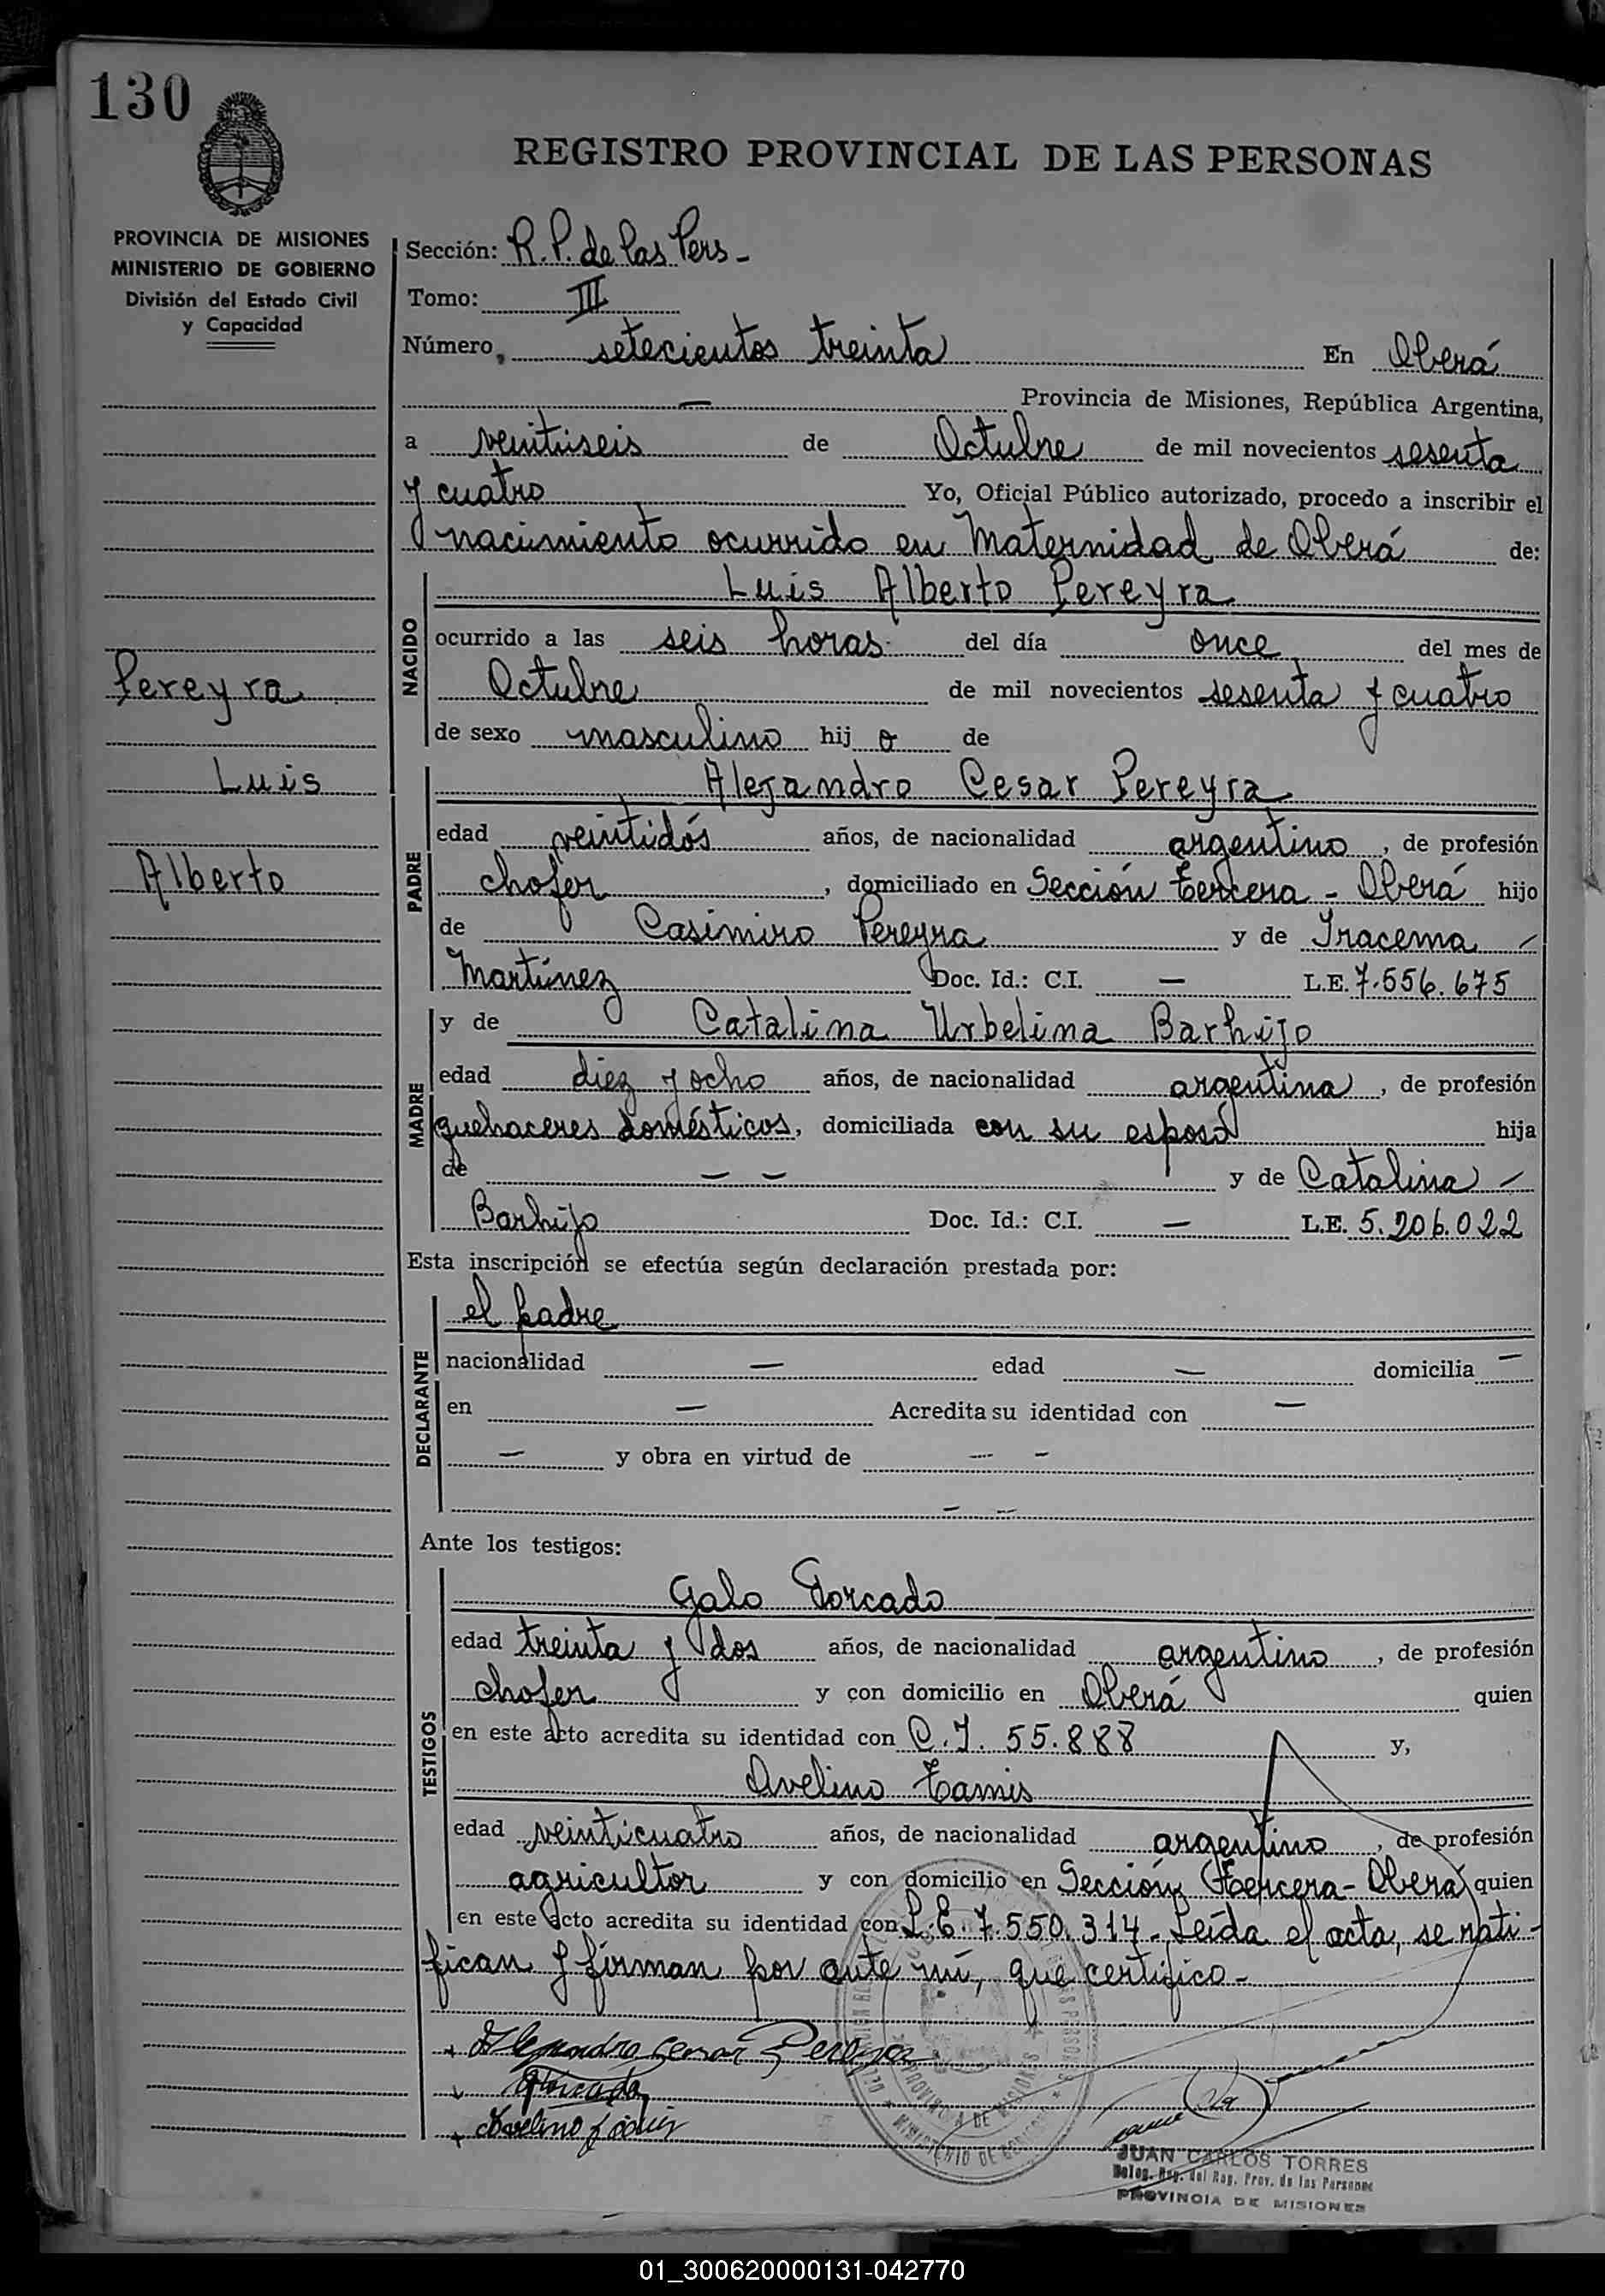 130
REGISTRO PROVINCIAL DE LAS PERSONAS
PROVINCIA DE MISIONES
MINISTERIO DE GOBIERNO
División del Estado Civil
y Capacidad
Pereyra
Luis
Alberto
Sección: R. P. de las Pers -
Tomo: III
Número, setecientos treinta En Oberá
— Provincia de Misiones, República Argentina,
a veintiseis de Octubre de mil novecientos sesenta
y cuatro Yo, Oficial Público autorizado, procedo a inscribir el
nacimiento ocurrido en Maternidad de Oberá de:
NACIDO
Luis Alberto Pereyra
ocurrido a las seis horas del día once del mes de
Octubre de mil novecientos sesenta y cuatro
de sexo masculino hij o de
PADRE
Alejandro Cesar Pereyra
edad veintidós años, de nacionalidad argentino, de profesión
chofer, domiciliado en Sección Tercera - Oberá hijo
de Casimiro Pereyra y de Iracema -
Martínez Doc. Id.: C.I. — L.E. 7.556.675
MADRE
y de Catalina Urbelina Barhijo
edad diez y ocho años, de nacionalidad argentina, de profesión
quehaceres domésticos, domiciliada con su esposo hija
de — — y de Catalina -
Barhijo Doc. Id.: C.I. — L.E. 5.206.022
Esta inscripción se efectúa según declaración prestada por:
DECLARANTE
el padre
nacionalidad — edad — domicilia —
en — Acredita su identidad con —
— y obra en virtud de — -
- -
Ante los testigos:
TESTIGOS
Galo Torcado
edad treinta y dos años, de nacionalidad argentino, de profesión
chofer y con domicilio en Oberá quien
en este acto acredita su identidad con C.I. 55.888 y,
Avelino Tamis
edad veinticuatro años, de nacionalidad argentino, de profesión
agricultor y con domicilio en Sección Tercera - Oberá quien
en este acto acredita su identidad con L.E. 7.550.314 - Leída el acta, se rati-
fican y firman por ante mí, que certifico -
Alejandro Cesar Pereyra
JUAN CARLOS TORRES
Deleg. Reg. del Reg. Prov. de las Personas
PROVINCIA DE MISIONES
01_300620000131-042770